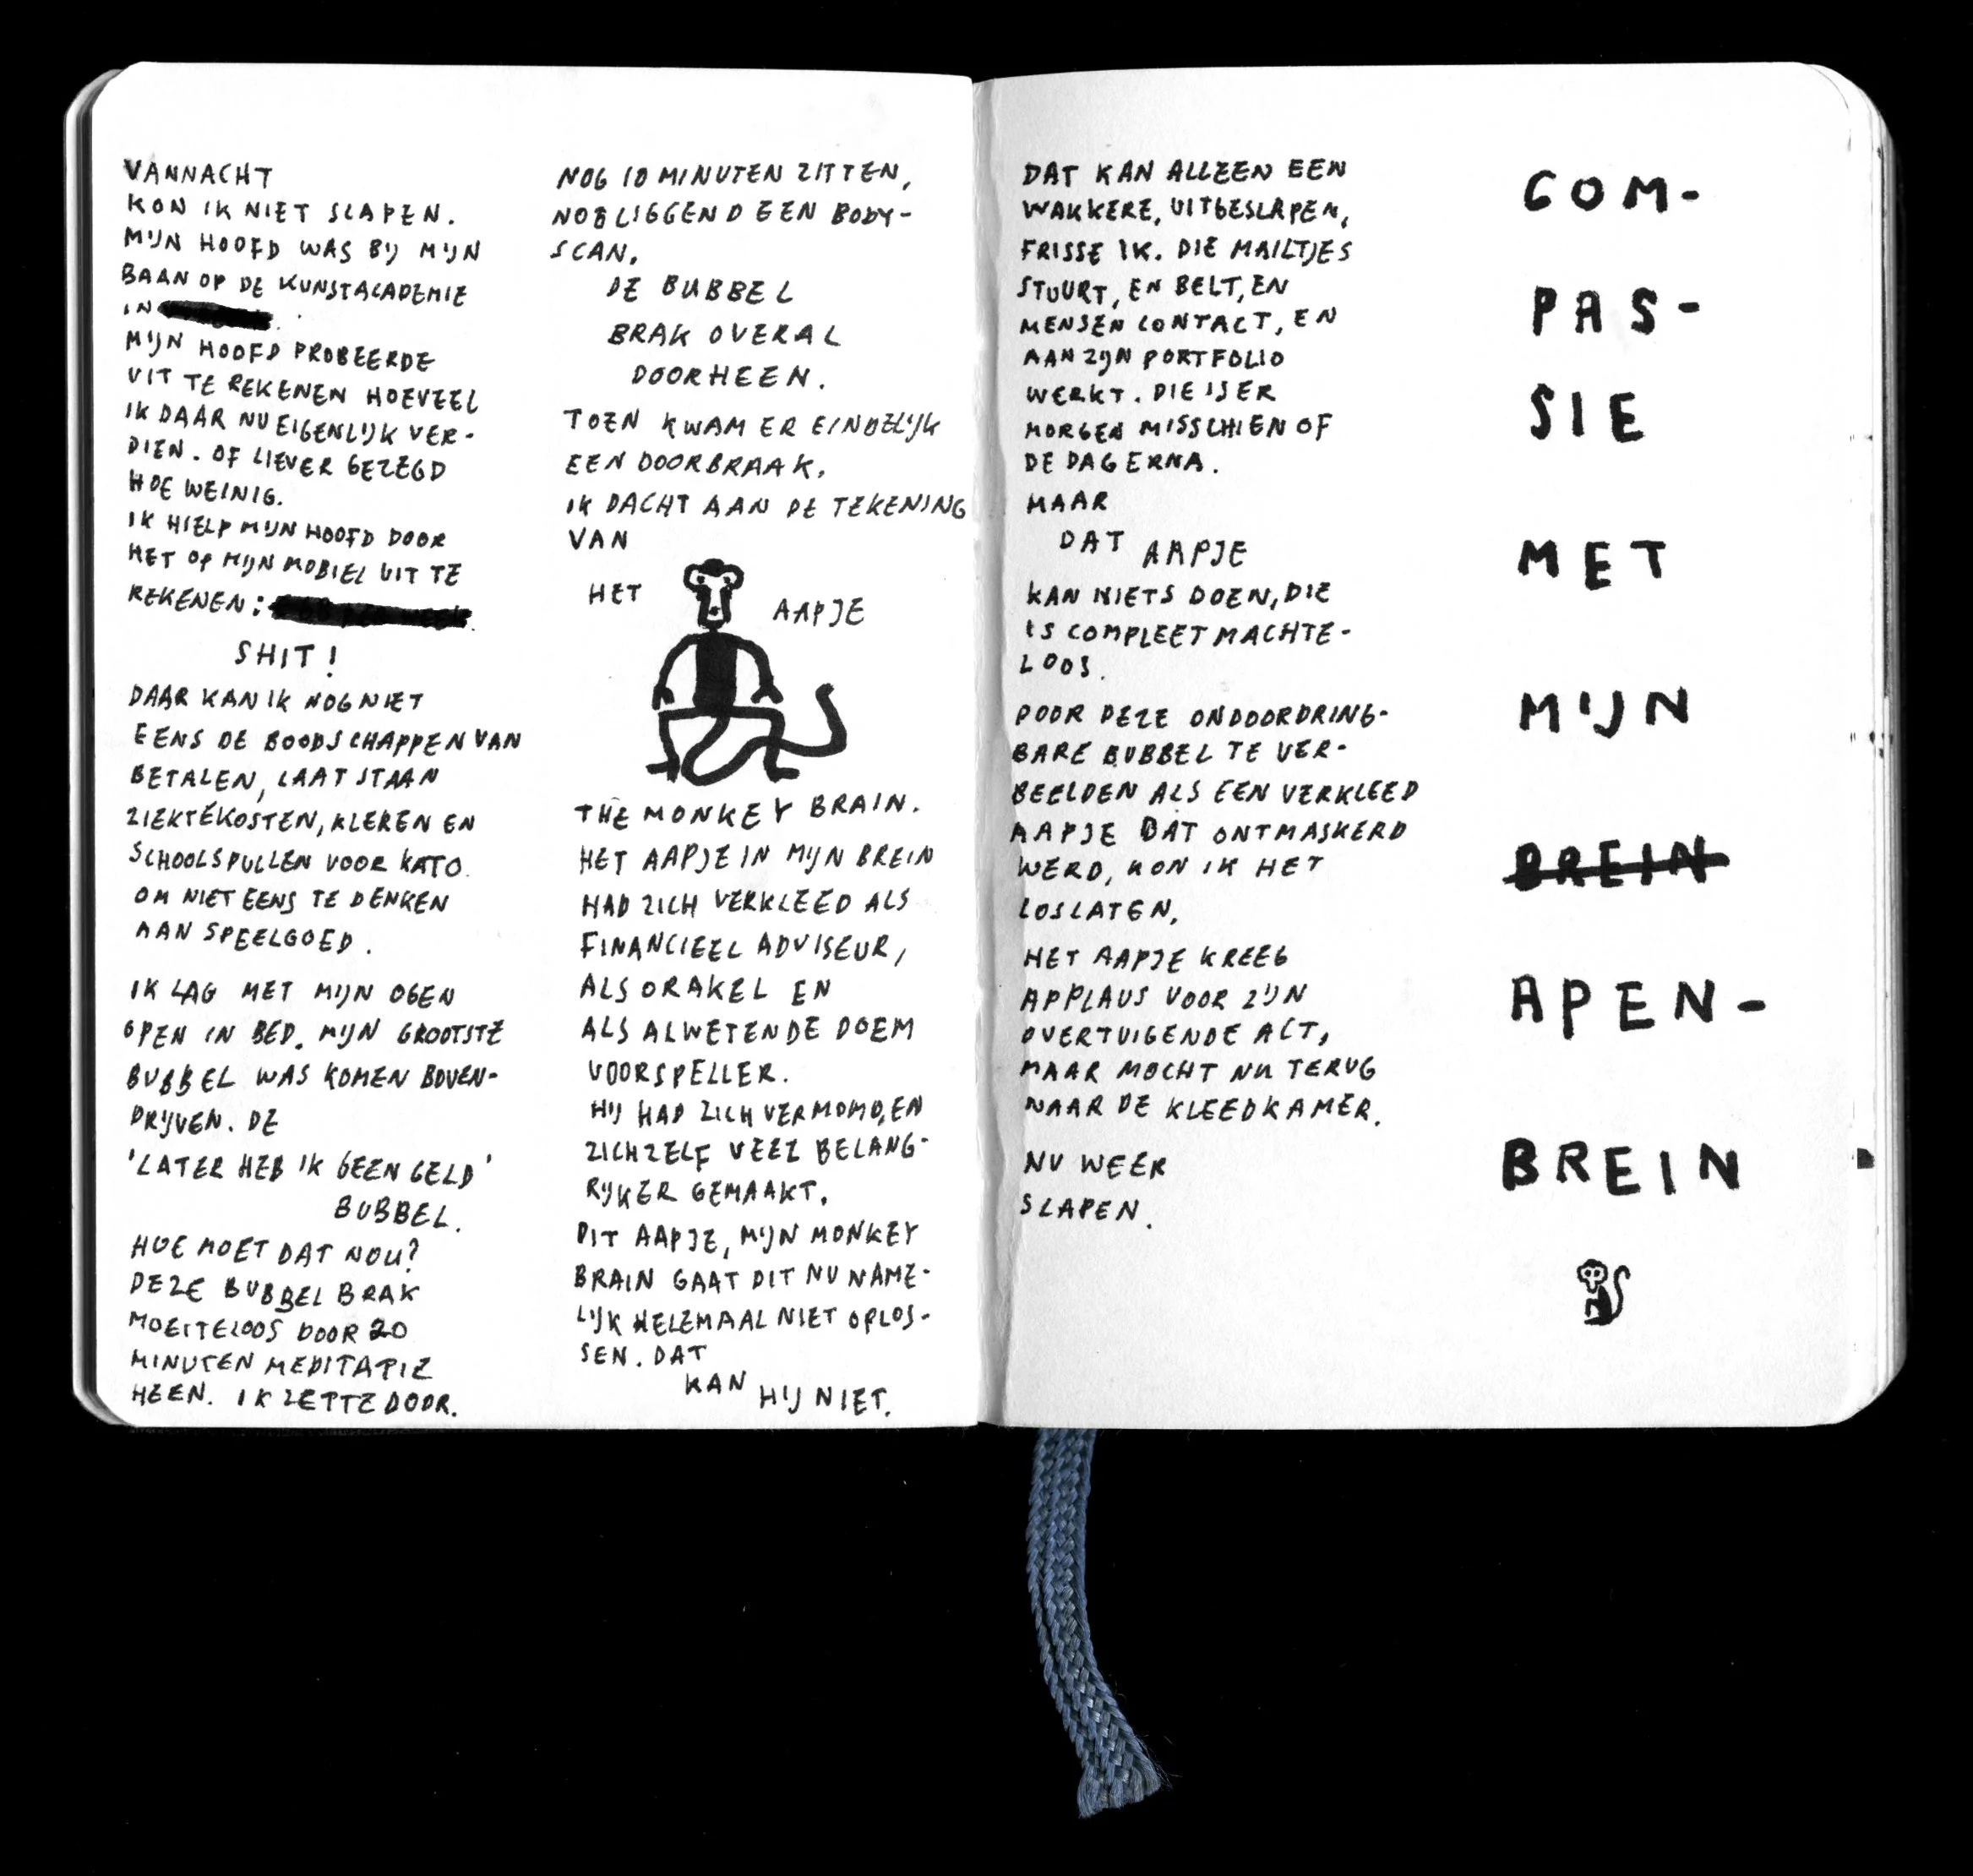 VANNACHT
KON IK NIET SLAPEN.
MIJN HOOFD WAS BIJ MIJN
BAAN OP DE KUNSTACADEMIE
IN
MIJN HOOFD PROBEERDE
UIT TE REKENEN HOEVEEL
IK DAAR NU EIGENLIJK VER-
DIEN. OF LIEVER GEZEGD
HOE WEINIG.
IK HIELP MIJN HOOFD DOOR
HET OP MIJN MOBIEL UIT TE
REKENEN:
SHIT!
DAAR KAN IK NOG NIET
EENS DE BOODSCHAPPEN VAN
BETALEN, LAAT STAAN
ZIEKTEKOSTEN, KLEREN EN
SCHOOLSPULLEN VOOR KATO.
OM NIET EENS TE DENKEN
AAN SPEELGOED.
IK LAG MET MIJN OGEN
OPEN IN BED. MIJN GROOTSTE
BUBBEL WAS KOMEN BOVEN-
DRIJVEN. DE
'LATER HEB IK GEEN GELD'
BUBBEL.
HOE MOET DAT NOU?
DEZE BUBBEL BRAK
MOEITELOOS DOOR 20
MINUTEN MEDITATIE
HEEN. IK ZETTE DOOR.
NOG 10 MINUTEN ZITTEN,
NOG LIGGEND EEN BODY-
SCAN.
DE BUBBEL
BRAK OVERAL
DOORHEEN.
TOEN KWAM ER EINDELIJK
EEN DOORBRAAK.
IK DACHT AAN DE TEKENING
VAN
HET AAPJE
THE MONKEY BRAIN.
HET AAPJE IN MIJN BREIN
HAD ZICH VERKLEED ALS
FINANCIEEL ADVISEUR,
ALS ORAKEL EN
ALS ALWETENDE DOEM
VOORSPELLER.
HIJ HAD ZICH VERMOMD, EN
ZICHZELF VEEL BELANG-
RIJKER GEMAAKT.
DIT AAPJE, MIJN MONKEY
BRAIN GAAT DIT NU NAME-
LIJK HELEMAAL NIET OPLOS-
SEN. DAT
KAN HIJ NIET.
DAT KAN ALLEEN EEN
WAKKERE, UITGESLAPEN,
FRISSE IK. DIE MAILTJES
STUURT, EN BELT, EN
MENSEN CONTACT, EN
AAN ZIJN PORTFOLIO
WERKT. DIE IS ER
MORGEN MISSCHIEN OF
DE DAG ERNA.
MAAR
DAT AAPJE
KAN NIETS DOEN, DIE
IS COMPLEET MACHTE-
LOOS.
DOOR DEZE ONDOORDRING-
BARE BUBBEL TE VER-
BEELDEN ALS EEN VERKLEED
AAPJE DAT ONTMASKERD
WERD, KON IK HET
LOSLATEN.
HET AAPJE KREEG
APPLAUS VOOR ZIJN
OVERTUIGENDE ACT,
MAAR MOCHT NU TERUG
NAAR DE KLEEDKAMER.
NU WEER
SLAPEN.
COM-
PAS-
SIE
MET
MIJN
BREIN
APEN-
BREIN